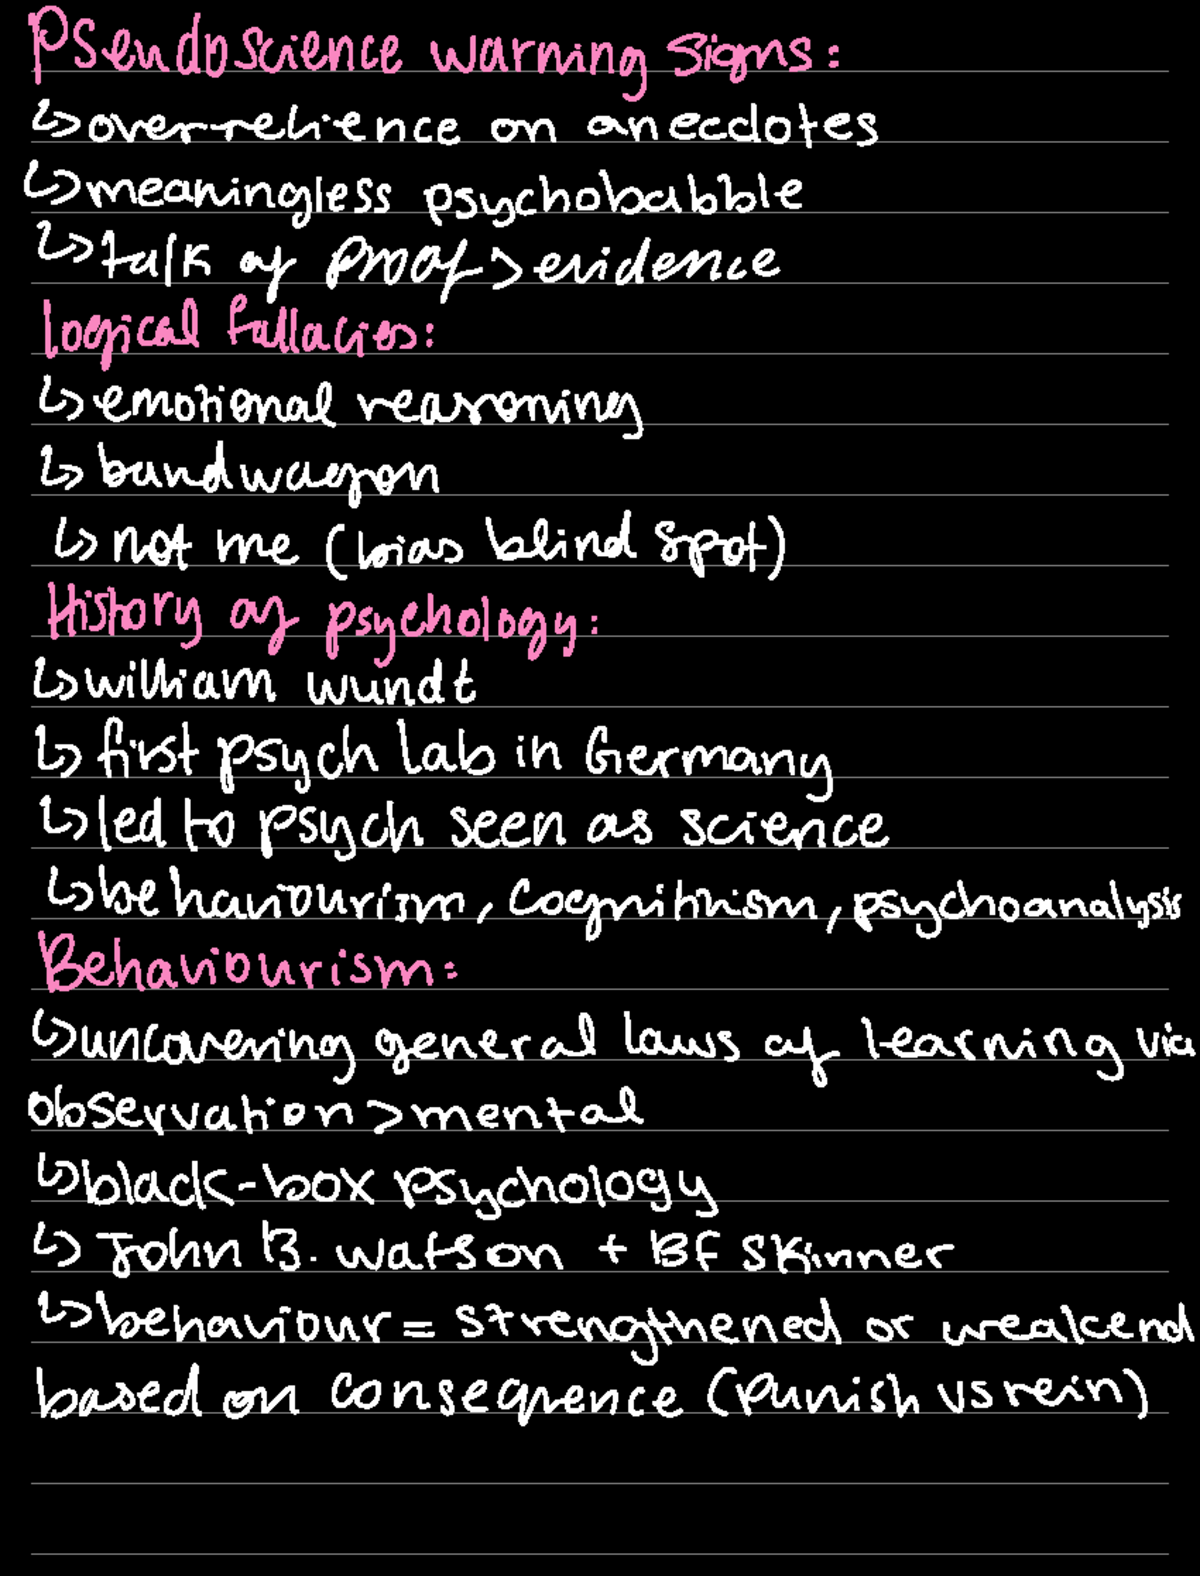 Pseudoscience warning signs:
↳ over-relience on anecdotes
↳ meaningless psychobabble
↳ talk of proof > evidence
Logical fallacies:
↳ emotional reasoning
↳ bandwagon
↳ not me (bias blind spot)
History of psychology:
↳ william wundt
↳ first psych lab in Germany
↳ led to psych seen as science
↳ behaviourism, cognitivism, psychoanalysis
Behaviourism:
↳ uncovering general laws of learning via
observation > mental
↳ black-box psychology
↳ John B. Watson + BF Skinner
↳ behaviour = strengthened or weakend
based on consequence (punish vs rein)